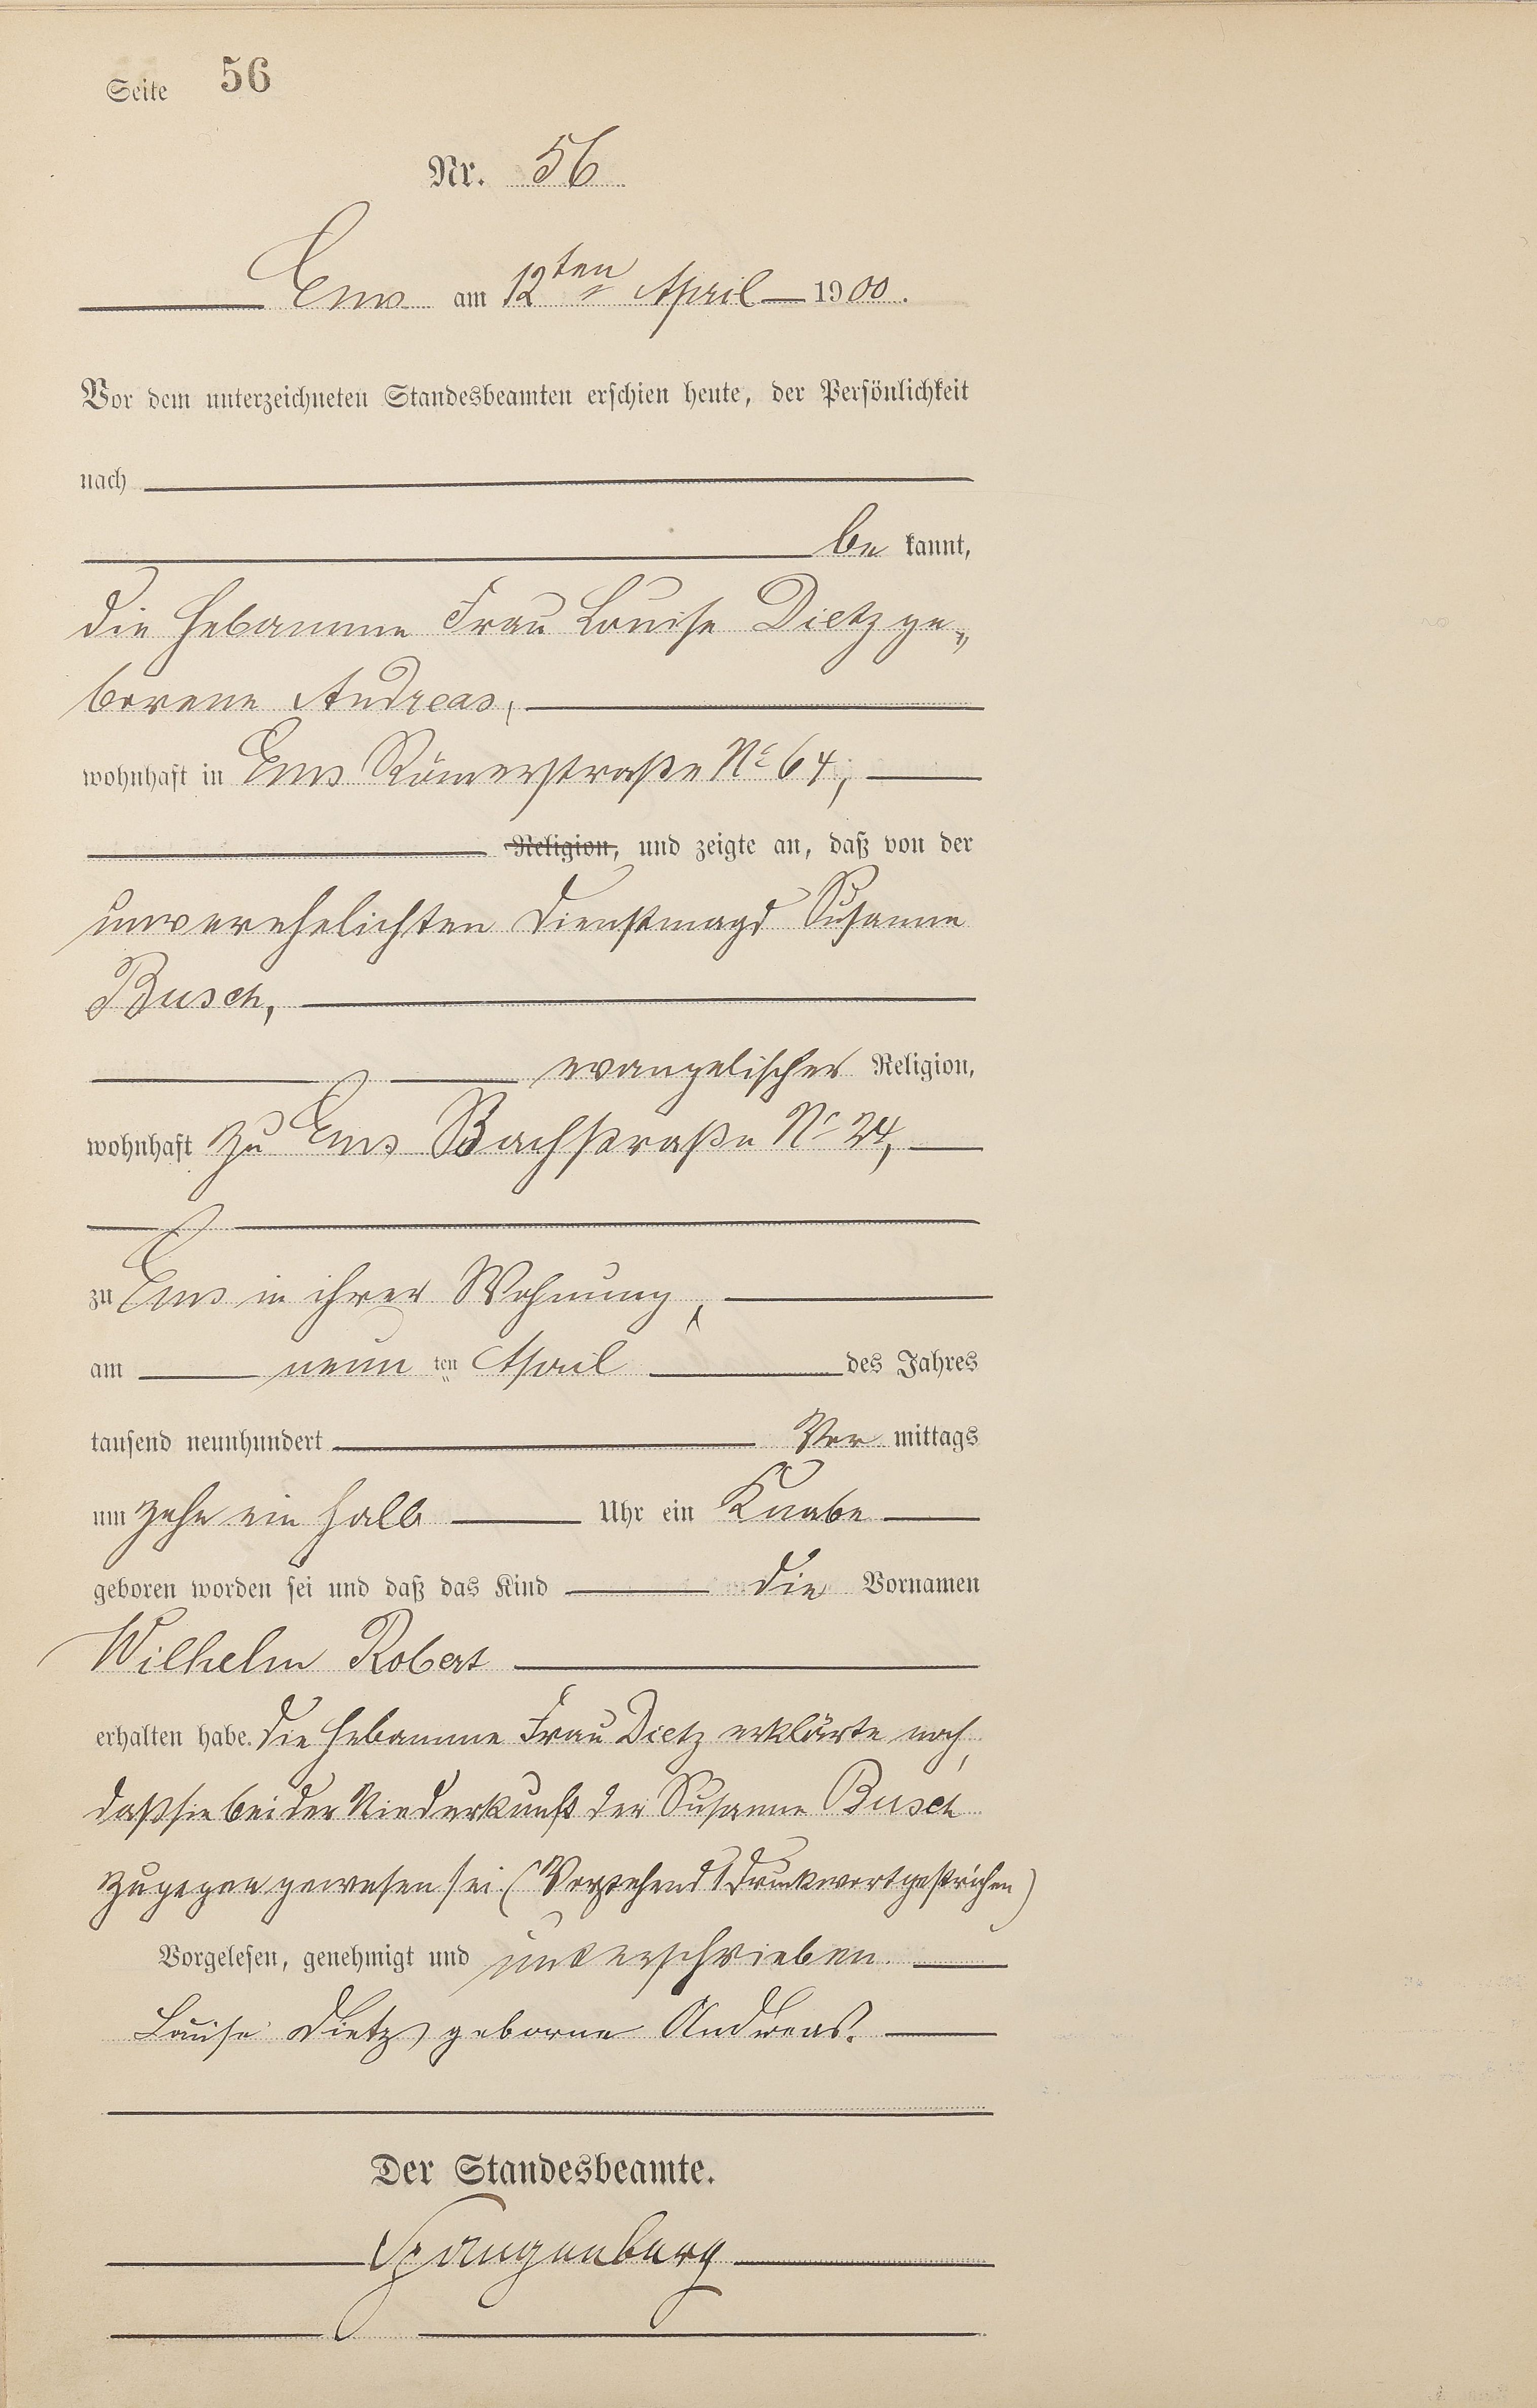 Seite 56
Nr. 56
Ems am 12ten April 1900.
Vor dem unterzeichneten Standesbeamten erschien heute, der Persönlichkeit
nach
be kannt,
die Hebamme Frau Louise Dietz ge„
borene Andreas,
wohnhaft in Ems Römerstraße No 64,
Religion, und zeigte an, daß von der
unverehelichten Dienstmagd Susanne
Busch,
evangelischer Religion,
wohnhaft zu Ems Bachstraße No 24,
zu Ems in ihrer Wohnung,
am neun ten April des Jahres
tausend neunhundert Vor mittags
um zehn ein halb Uhr ein Knabe
geboren worden sei und daß das Kind die Vornamen
Wilhelm Robert
erhalten habe. Die Hebamme Frau Dietz erklärte noch,
daß sie bei der Niederkunft der Susanne Busch
zugegen gewesen sei. (Vorstehend 1 Druckwort gestrichen)
Vorgelesen, genehmigt und unterschrieben.
Louise Dietz geborne Andreas.
Der Standesbeamte.
Spangenberg